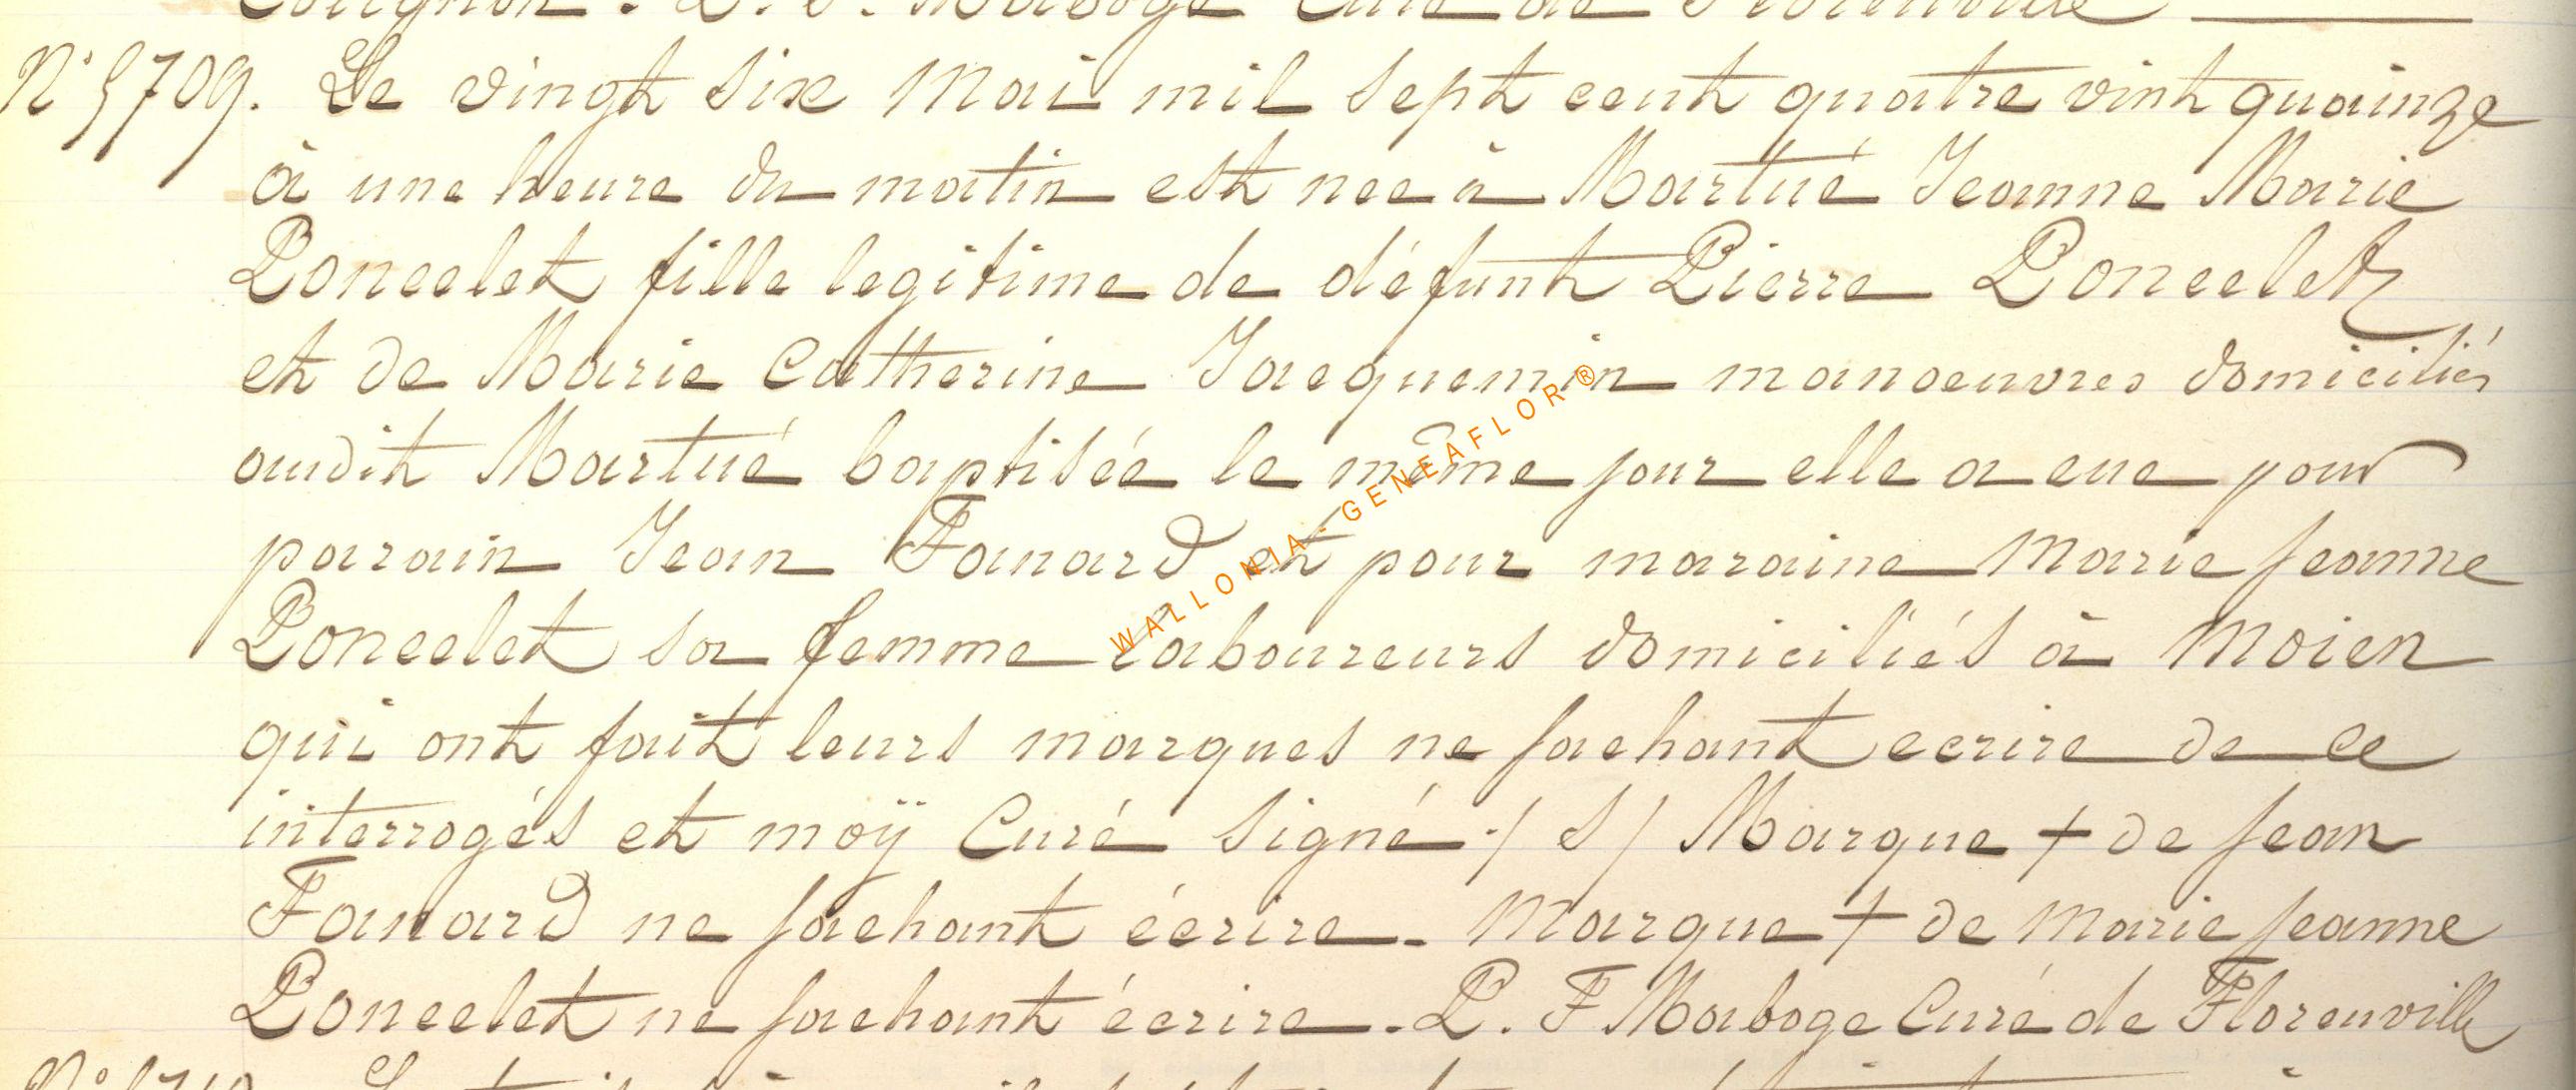 Curé de Florenville
N° 5709. Le vingt six Mai mil sept cent quatre vint quainze
à une heure du matin est nee à Martué Jeanne Marie
Poncelet fille legitime de défunt Pierre Poncelet
et de Marie Catherine Jacquemin manoeuvres domiciliés
audit Martué baptisée le même jour elle a eue pour
parain Jean Fanard et pour maraine Marie Jeanne
Poncelet sa femme laboureurs domiciliés à Moien
qui ont fait leurs marques ne sachant ecrire de ce
interrogés et moÿ Curé Signé / S / Marque + de Jean
Fanard ne sachant écrire. Marque + de Marie Jeanne
Poncelet ne sachant écrire. P. F Maboge Curé de Florenville
WALLONIA-GENEAFLOR®